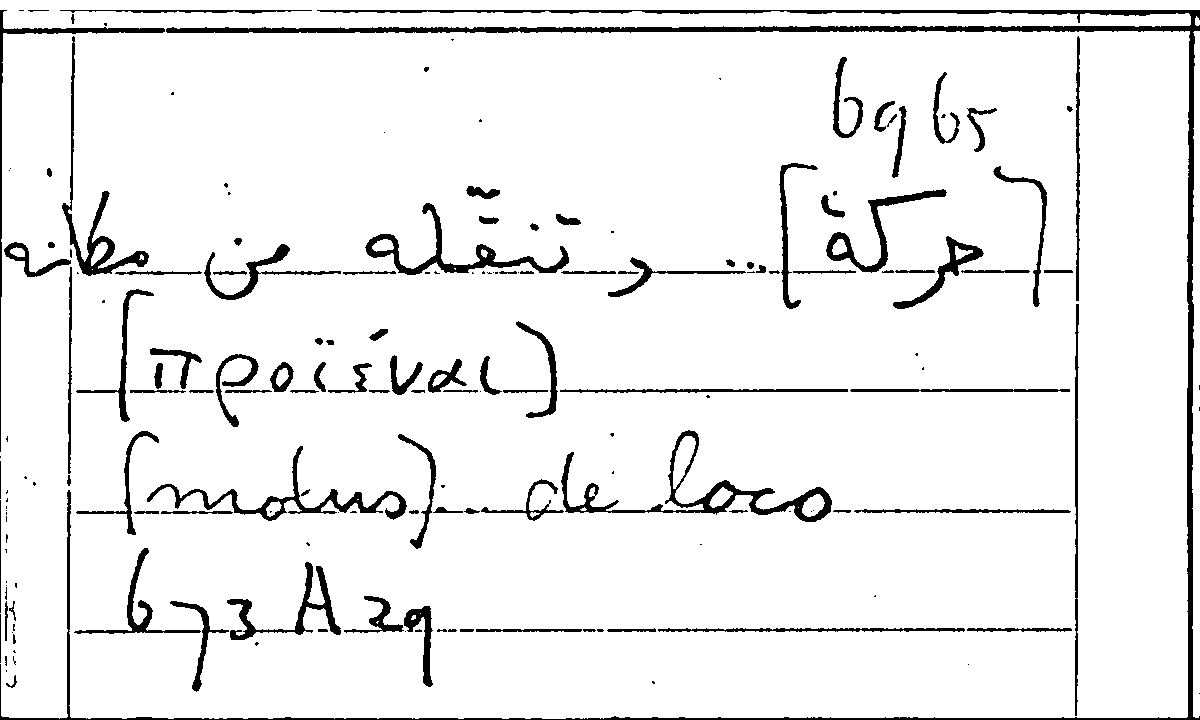 69b5
[حركة] ... وتنقّله من مكانه
[προϊέναι]
[motus] ... de loco
673 A 29